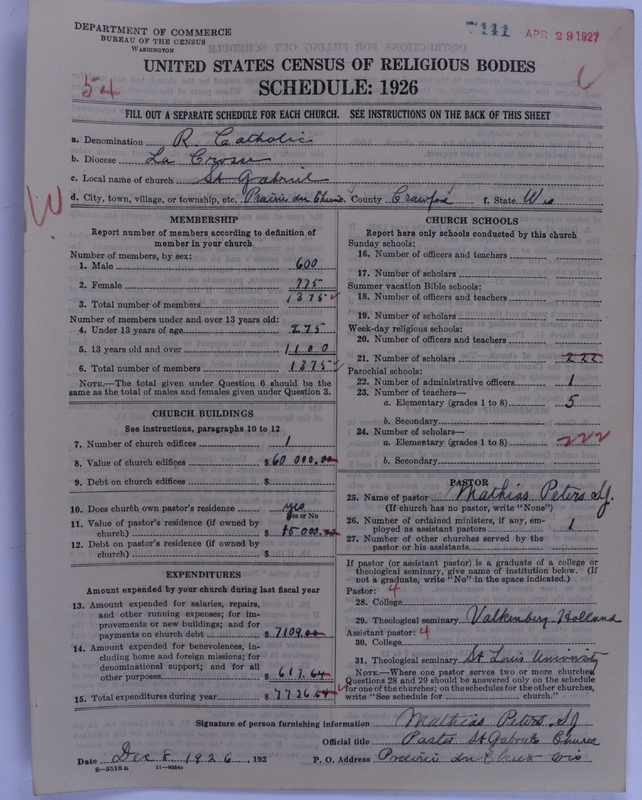 DEPARTMENT OF COMMERCE
BUREAU OF THE CENSUS
WASHINGTON
7111 APR 29 1927
UNITED STATES CENSUS OF RELIGIOUS BODIES
54
SCHEDULE: 1926
FILL OUT A SEPARATE SCHEDULE FOR EACH CHURCH. SEE INSTRUCTIONS ON THE BACK OF THIS SHEET
a. Denomination R. Catholic
b. Diocese La Crosse
c. Local name of church St Gabriel
d. City, town, village, or township, etc. Prairie du Chien County Crawford f. State Wis
W.
MEMBERSHIP
Report number of members according to definition of
member in your church
Number of members, by sex:
1. Male 600
2. Female 775
3. Total number of members 1375
Number of members under and over 13 years old:
4. Under 13 years of age 275
5. 13 years old and over 1100
6. Total number of members 1375
NOTE.—The total given under Question 6 should be the
same as the total of males and females given under Question 3.
CHURCH BUILDINGS
See instructions, paragraphs 10 to 12
7. Number of church edifices 1
8. Value of church edifices $60 000.00
9. Debt on church edifices $
10. Does church own pastor's residence yes
Yes or No
11. Value of pastor's residence (if owned by
church) $ 15 000.00
12. Debt on pastor's residence (if owned by
church) $
EXPENDITURES
Amount expended by your church during last fiscal year
13. Amount expended for salaries, repairs,
and other running expenses; for im-
provements or new buildings; and for
payments on church debt $ 7109.00
14. Amount expended for benevolences, in-
cluding home and foreign missions; for
denominational support; and for all
other purposes 617.64
15. Total expenditures during year $ 7726.64
CHURCH SCHOOLS
Report here only schools conducted by this church
Sunday schools:
16. Number of officers and teachers
17. Number of scholars
Summer vacation Bible schools:
18. Number of officers and teachers
19. Number of scholars
Week-day religious schools:
20. Number of officers and teachers
21. Number of scholars 222
Parochial schools:
22. Number of administrative officers 1
23. Number of teachers—
a. Elementary (grades 1 to 8) 5
b. Secondary
24. Number of scholars—
a. Elementary (grades 1 to 8) 222
b. Secondary
PASTOR
25. Name of pastor Mathias Peters S.J.
(If church has no pastor, write "None")
26. Number of ordained ministers, if any, em-
ployed as assistant pastors 1
27. Number of other churches served by the
pastor or his assistants
If pastor (or assistant pastor) is a graduate of a college or
theological seminary, give name of institution below. (If
not a graduate, write "No" in the space indicated.)
Pastor: 4
28. College
29. Theological seminary Valkenberg Holland
Assistant pastor: 4
30. College
31. Theological seminary St Louis University
NOTE.—Where one pastor serves two or more churches,
Questions 28 and 29 should be answered only on the schedule
for one of the churches; on the schedules for the other churches,
write "See schedule for church."
Signature of person furnishing information Mathias Peters, SJ
Official title Pastor St Gabriels Church
Date Dec 8 1926, 192 P. O. Address Prairie du Chien Wis
8—5518a 11—9054a